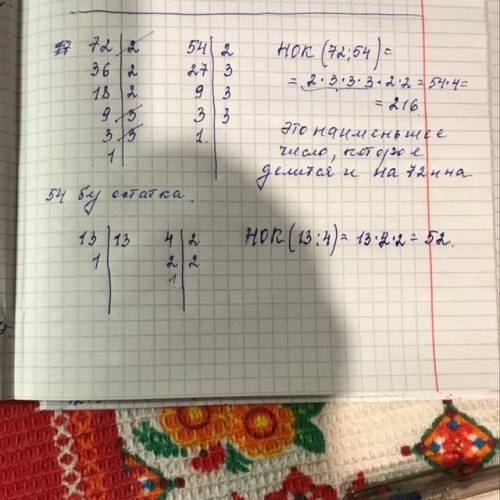 72 | 2 54 | 2 НОК (72; 54) =
36 | 2 27 | 3 = 2·3·3·3·2·2 = 54·4 =
18 | 2 9 | 3 = 216.
9 | 3 3 | 3 Это наименьшее
3 | 3 1 число, которое
1 делится и на 72 и на
54 бу остатка.
13 | 13 4 | 2 НОК (13; 4) = 13·2·2 = 52.
1 2 | 2
1